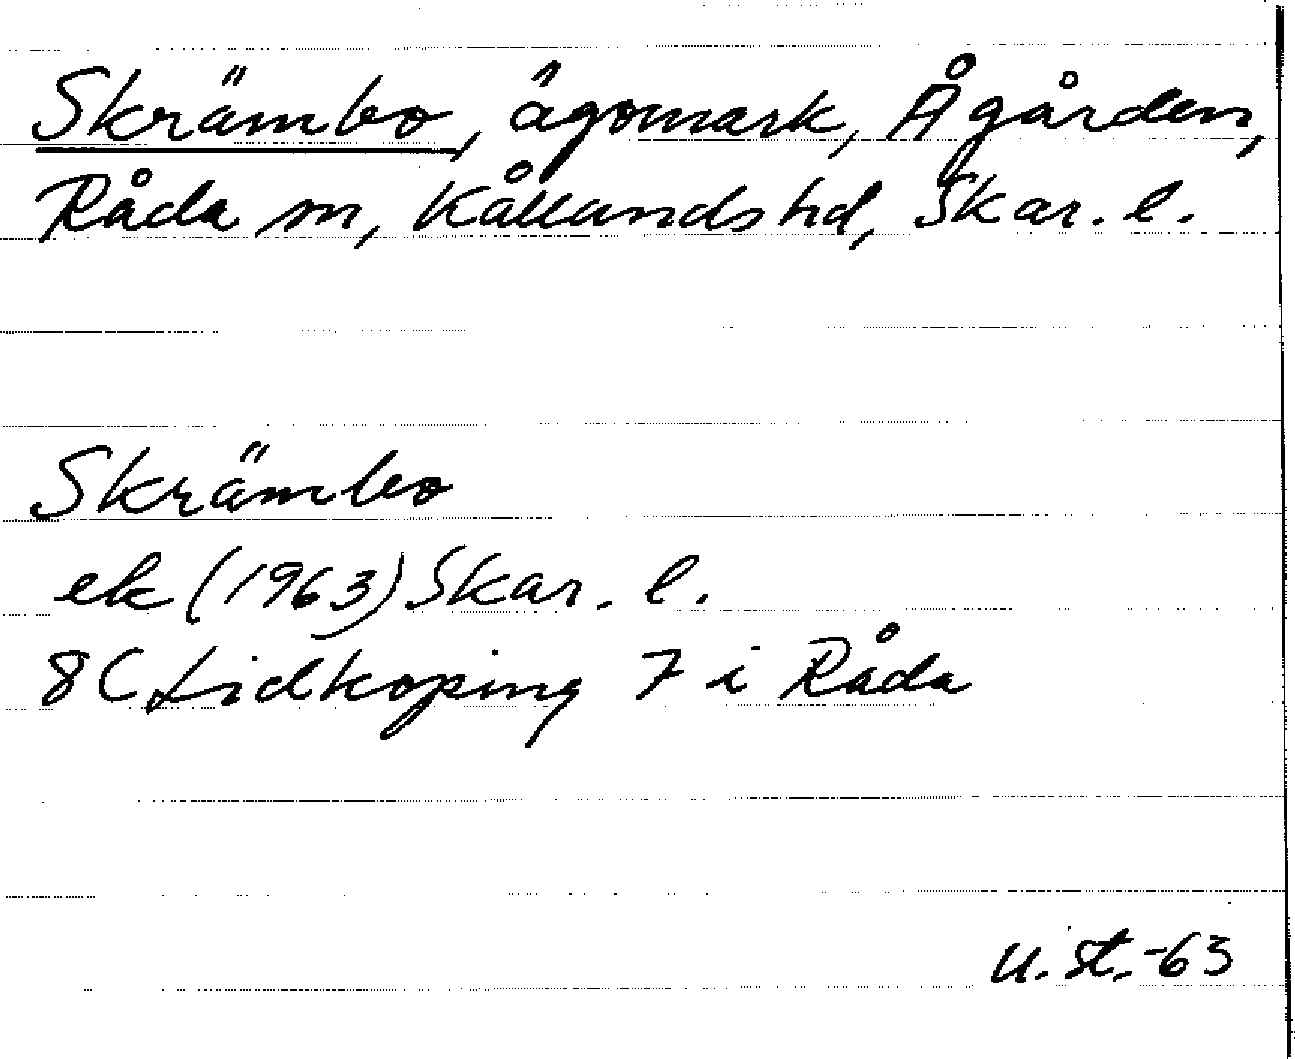 Skrämbo, ägomark, Ågården,
Råda sn, Kållands hd, Skar. l.
Skrämbo
ek (1963) Skar. l.
8C Lidköping 7 i Råda
U. st. -63